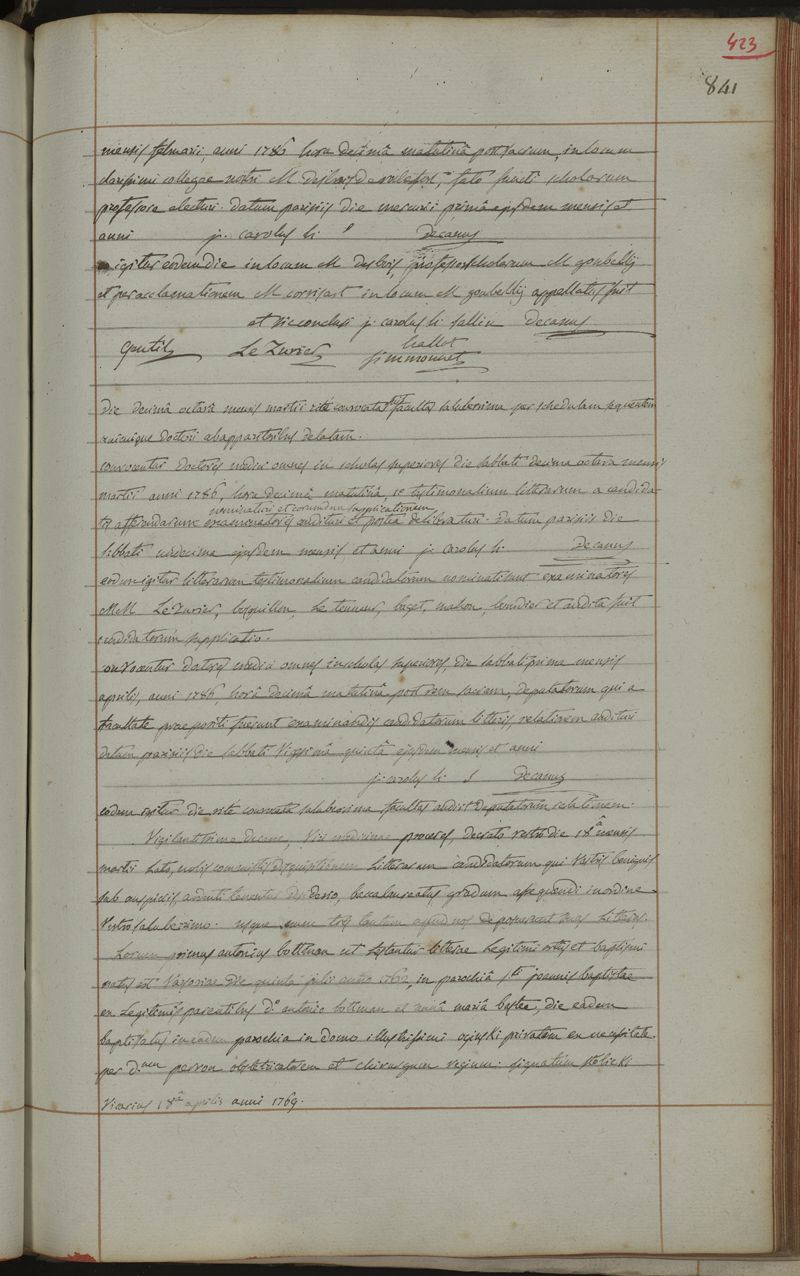 423
841
mensis februarii, anni 1786 hora decimâ matutinâ post sacrum, in locum
clarissimi collegae nostri M Desbois de rochefort, fato functi scholarum
professore electuri. Datum parisiis die mercurii primâ ejusdem mensis et
anni j. carolus h. s Decanus
igitur eodem die in locum M desbois, professor scholarum M goubelly
et per acclamationem M corvisart in locum M goubelly appellatus fuit
et sic conclusi j. carolus h. sallin Decanus
Gentil Le Zurier hallot
Simmonnet
die decimâ octavâ mensis martii rité convocata fuit facultas saluberrima per schedulam sequentem
unicuique doctori ab apparitoribus delatam.
convocentur doctores medici omnes in scholas superiores die sabbati decima octava mensis
martii anni 1786, hora decimâ matutinâ, testimonialium litterarum a candida-
nominaturi et eorumdem supplicationem
tis afferendarum examinatores audituri et postea deliberaturi. Datum parisiis die
sabbati undecima ejusdem mensis et anni j. carolus h. Decanus
eodem igitur litterarum testimonialium candidatorum nominati sunt examinatores
MM Le Zurier, bosquillon, Le tenneur, baget, mahon, et audita fuit
candidatorum supplicatio.
convocentur doctores medici omnes in scholas superiores, die sabbati prima mensis
aprilis, anni 1786, horâ decimâ matutinâ, post rem sacram, deputatorum qui a
facultate praepositi fuerunt examinandis candidatorum litteris, relationem audituri
datum parisiis die sabbati vigesimâ quintâ ejusdem mensis et anni
j. carolus h. s Decanus
eodem igitur die rité convocata saluberrima facultas audivit deputatorum relationem.
Vigilantissime decane, viri medicinae proceres, decreto vestro die 18â mensis
martii lato, nobis commisistis disquisitionem litterarum candidatorum qui vestris benignis
sub auspiciis desiderio, baccalaureatus gradum assequendi in ordine
vestro saluberrimo. usque nunc tres tantum apud nos deposuerunt suas litteras.
horum primus antonius bottman ut testantur litterae legitimi ortus et baptismi
natus est Varsoviae die quinta julii anno 1762, in parochiâ sti joannis baptistae
ex legitimis parentibus d.o antonio bottman et mariâ die eadem
baptisatus in eadem parochia in domo illustrissimi oginski privatim ex necessitate.
per d.num perron obstetricatorem et chirurgum regium. signatum
vicarius 18â aprilis anni 1769.